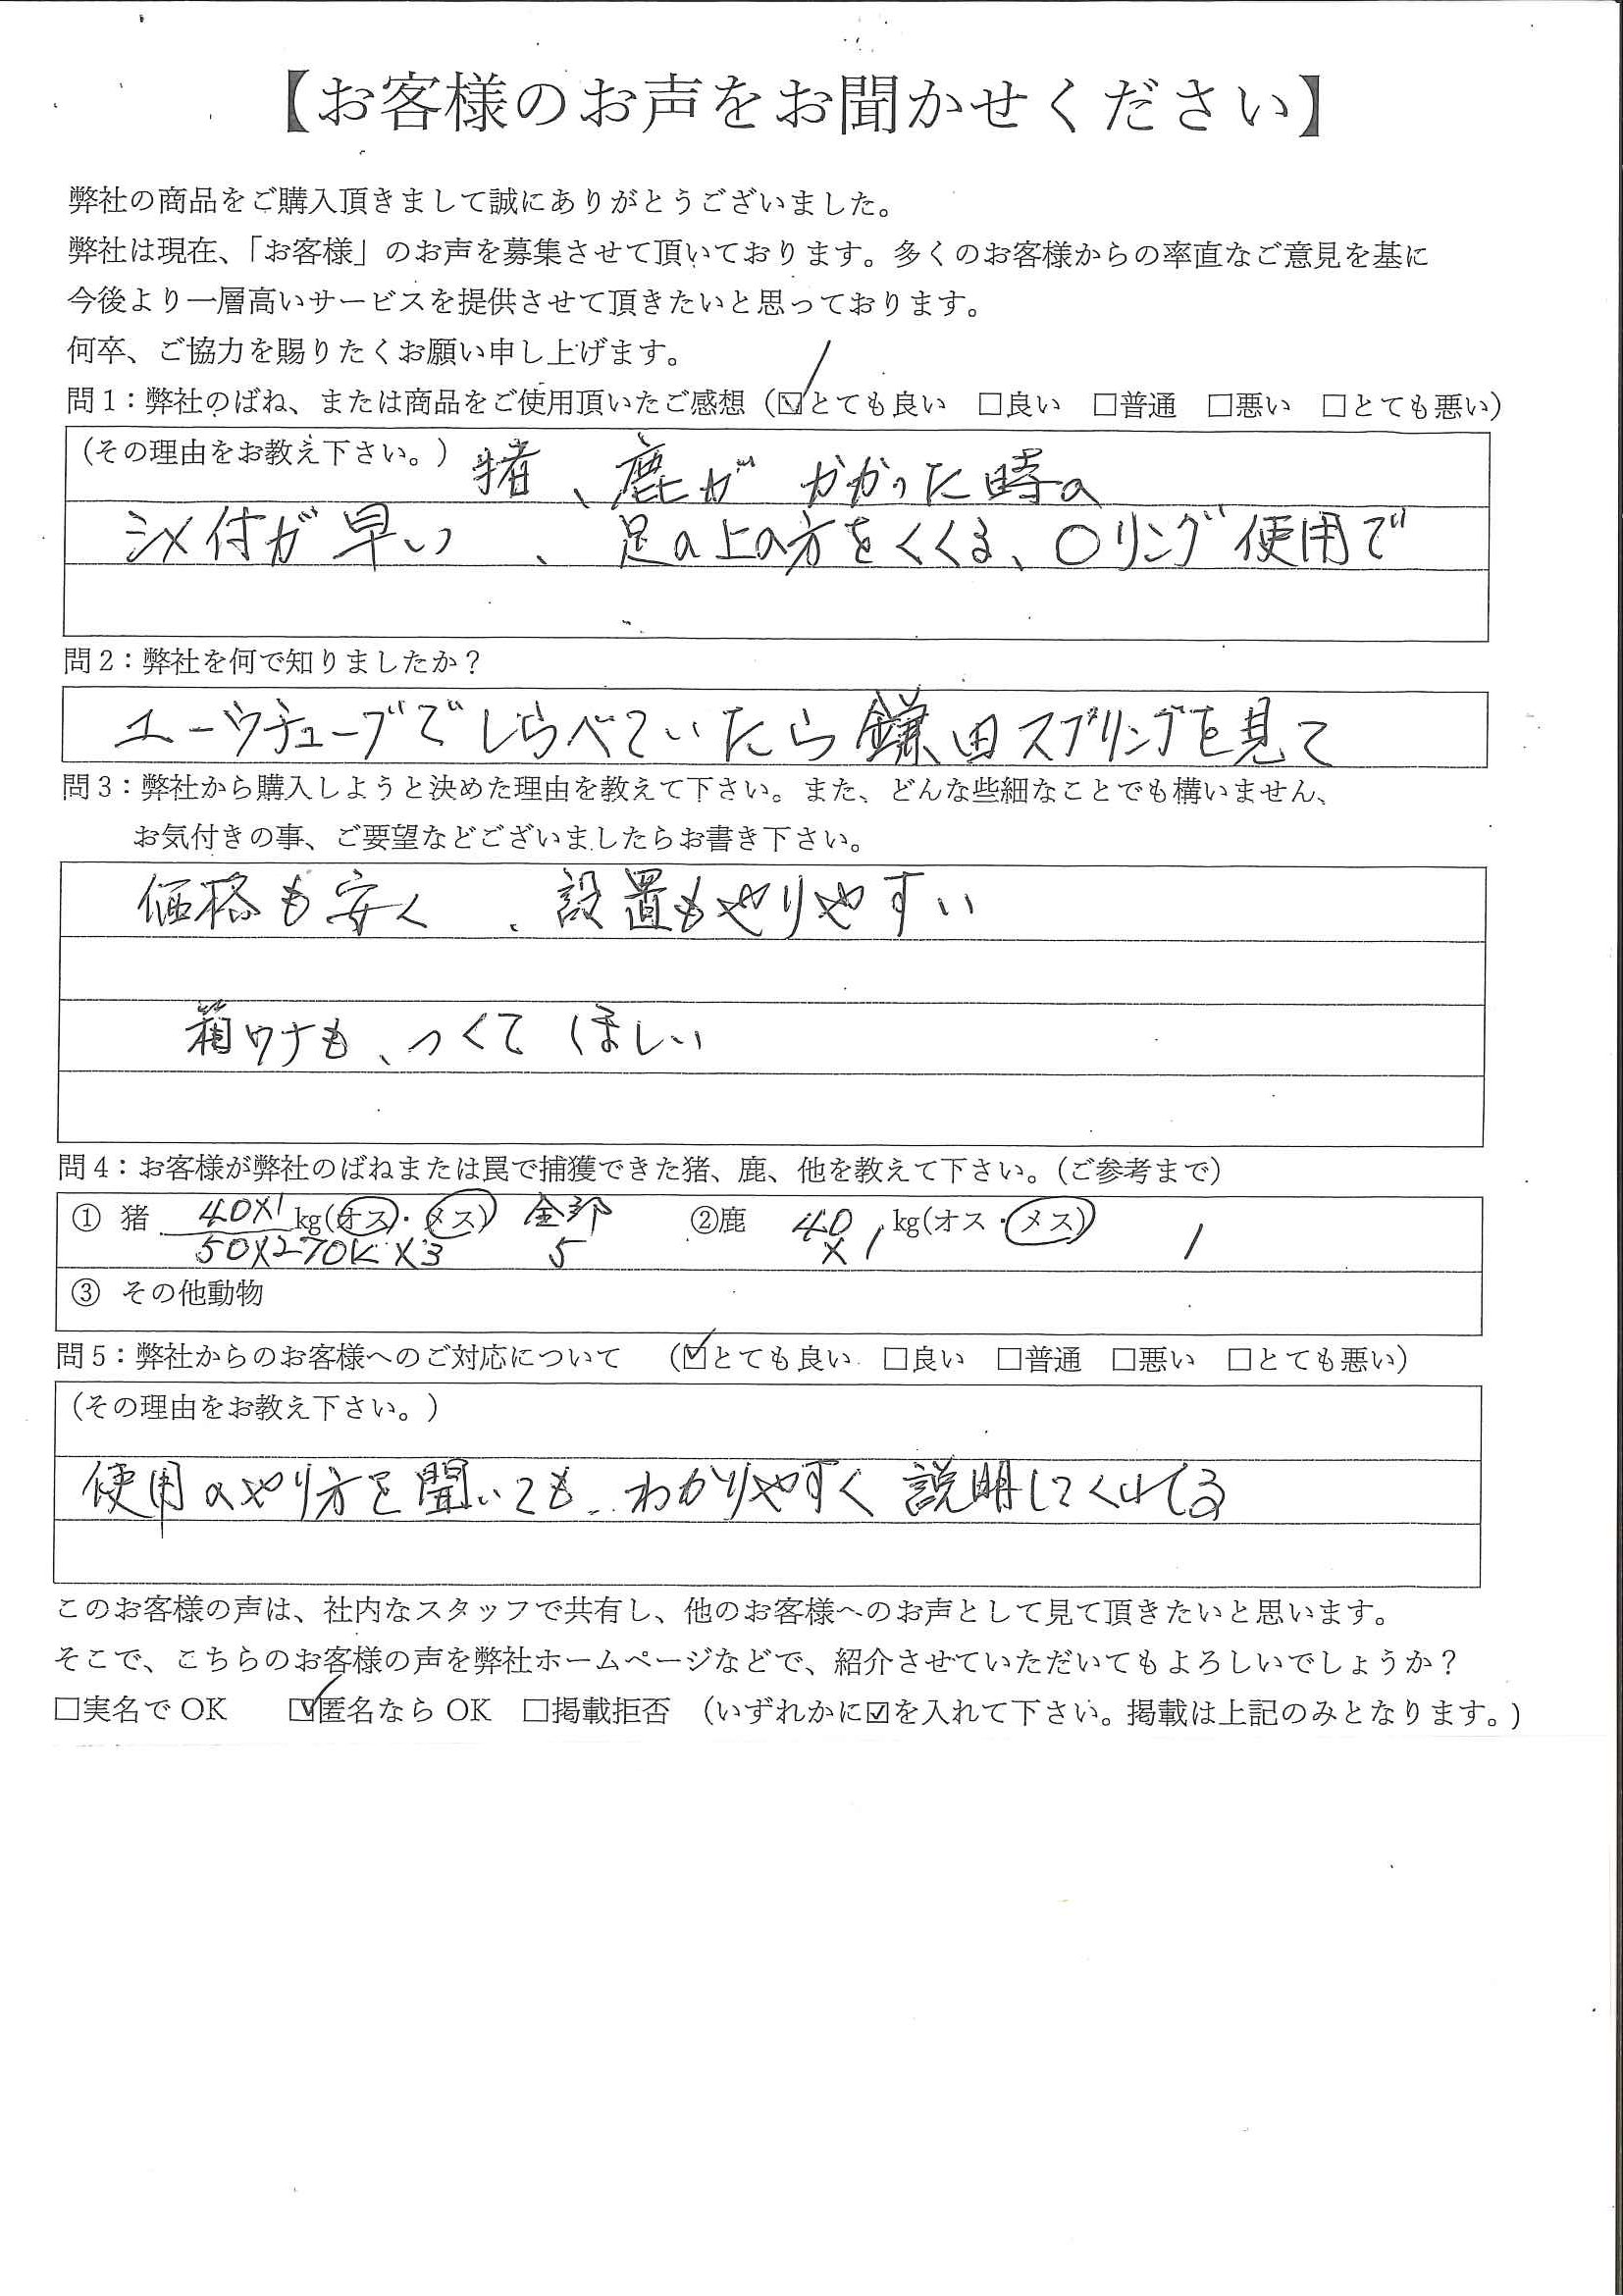 【お客様のお声をお聞かせください】
弊社の商品をご購入頂きまして誠にありがとうございました。
弊社は現在、「お客様」のお声を募集させて頂いております。多くのお客様からの率直なご意見を基に
今後より一層高いサービスを提供させて頂きたいと思っております。
何卒、ご協力を賜りたくお願い申し上げます。
問1：弊社のばね、または商品をご使用頂いたご感想（☑とても良い　□良い　□普通　□悪い　□とても悪い）
（その理由をお教え下さい。）猪、鹿が かかった時の
シメ付が早い、足の上の方をくくる、〇リング使用で
問2：弊社を何で知りましたか？
ユーウチューブでしらべていたら鎌田スプリングを見て
問3：弊社から購入しようと決めた理由を教えて下さい。また、どんな些細なことでも構いません、
お気付きの事、ご要望などございましたらお書き下さい。
価格も安く、設置もやりやすい
箱ワナも、つくてほしい
問4：お客様が弊社のばねまたは罠で捕獲できた猪、鹿、他を教えて下さい。（ご参考まで）
① 猪 40X1 kg(オス・メス) 全部 ②鹿 40 kg(オス・メス) 1
50X2 70K X3 5 X1
③ その他動物
問5：弊社からのお客様へのご対応について　（☑とても良い　□良い　□普通　□悪い　□とても悪い）
（その理由をお教え下さい。）
使用のやり方を聞いても、わかりやすく説明してくれてる
このお客様の声は、社内なスタッフで共有し、他のお客様へのお声として見て頂きたいと思います。
そこで、こちらのお客様の声を弊社ホームページなどで、紹介させていただいてもよろしいでしょうか？
□実名でOK　☑匿名ならOK　□掲載拒否　（いずれかに☑を入れて下さい。掲載は上記のみとなります。）